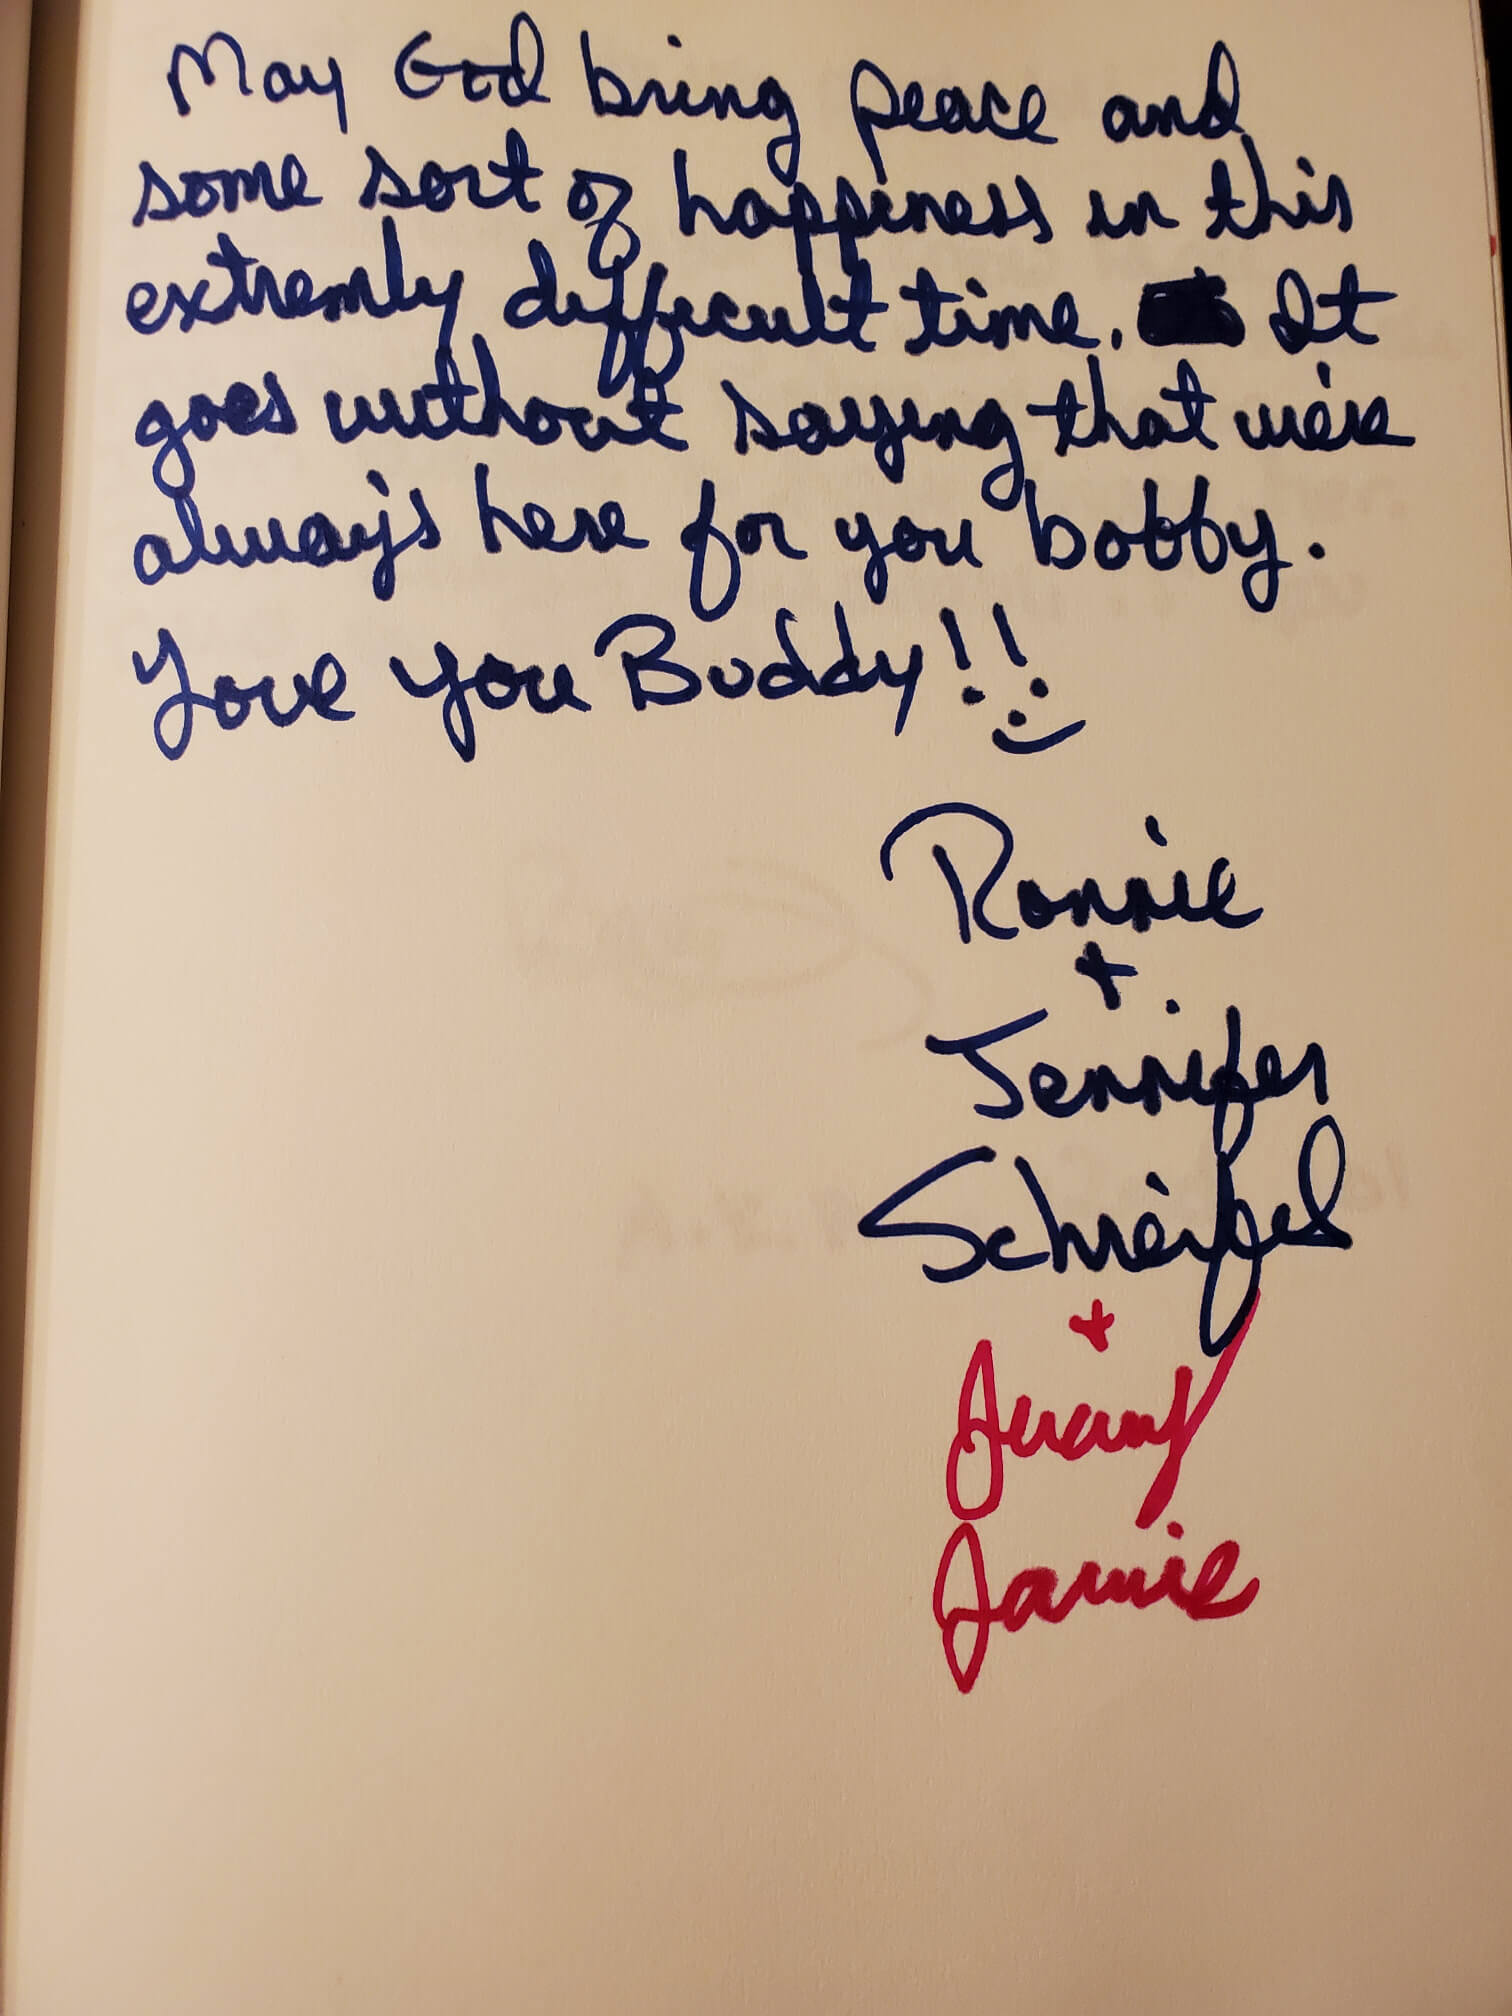 May God bring peace and
some sort of happiness in this
extremly difficult time. It
goes without saying that we're
always here for you bobby.
Love you Buddy!!
Ronnie
+
Jennifer
Schreifel
+
Jeramy
Jamie